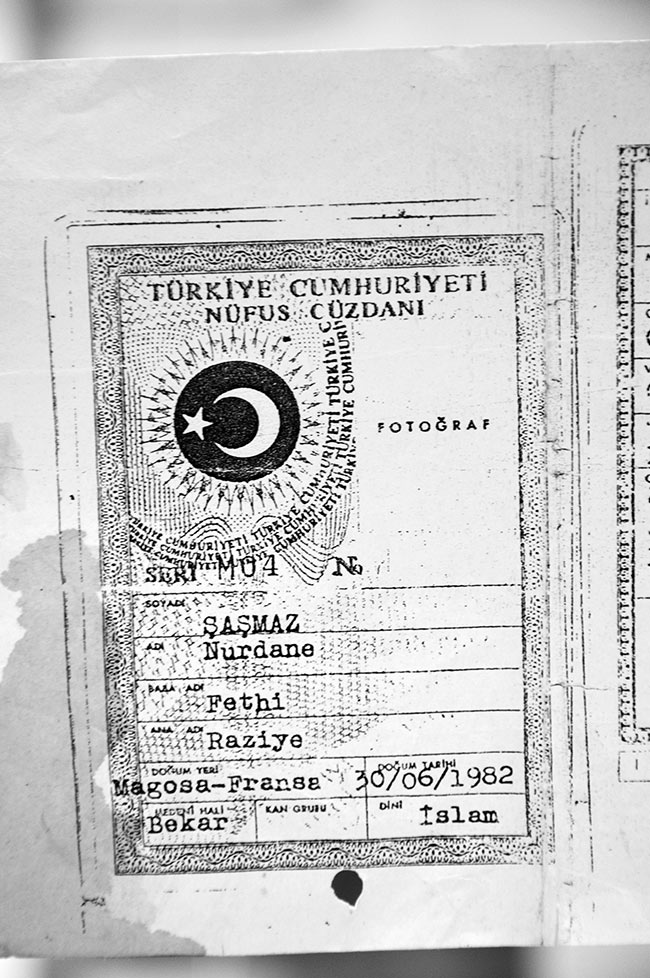 TÜRKİYE CUMHURİYETİ
NÜFUS CÜZDANI
FOTOĞRAF
TÜRKİYE CUMHURİYETİ TÜRKİYE CUMHURİYETİ TÜRKİYE
SERİ M04 No
SOYADI
ŞAŞMAZ
ADI
Nurdane
BABA ADI
Fethi
ANA ADI
Raziye
DOĞUM YERİ DOĞUM TARİHİ
Magosa-Fransa 30/06/1982
MEDENİ HALİ KAN GRUBU DİNİ
Bekar İslam